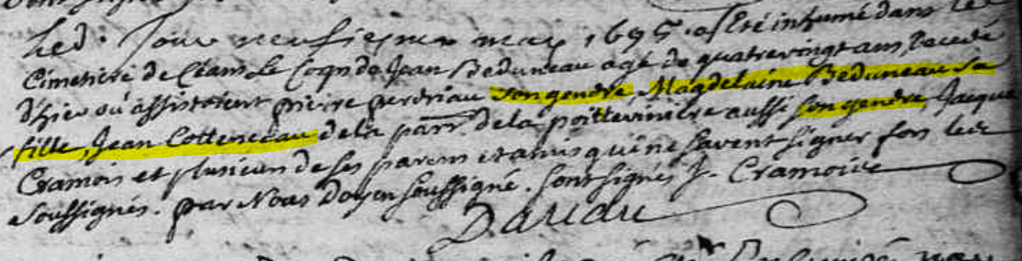 Led. Jour neufiesme may 1695. a Esté inhumé dans le
Cimetiere de Céans Le Corps de Jean Beduneau agé de quatre vingt ans Decedé
d'hier où assistoient pierre perdriau son gendre, Magdelaine Beduneau sa
fille, Jean Cottenceau de la parr. de la poittevinière aussi son gendre, Jacque
Cramois et plusieurs de ses parens et amis qui ne scavent signer fors les
soussignés. par Nous Doyen soussigné. sont signés J. Cramoise